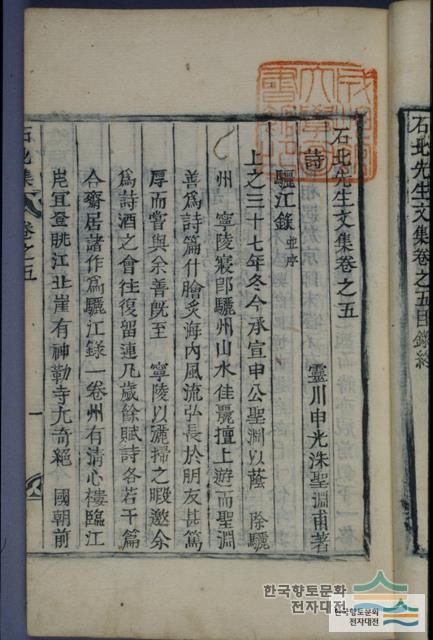 石北先生文集卷之五目錄終
石北先生文集卷之五
靈川申光洙聖淵甫著
詩
驪江錄 並序
上之三十七年冬今承宣申公聖淵以蔭 除驪
州 寧陵寢郎驪州山水佳麗擅上游而聖淵
善爲詩篇什膾炙海內風流弘長於朋友甚篤
厚而嘗與余善旣至 寧陵以灑掃之暇邀余
爲詩酒之會往復留連凡歲餘賦詩各若干篇
合齋居諸作爲驪江錄一卷州有清心樓臨江
岸宜登眺江北崖有神勒寺尤奇絕 國朝前
石北集 卷之五
一
한국향토문화
전자대전
한국향토문화
전자대전